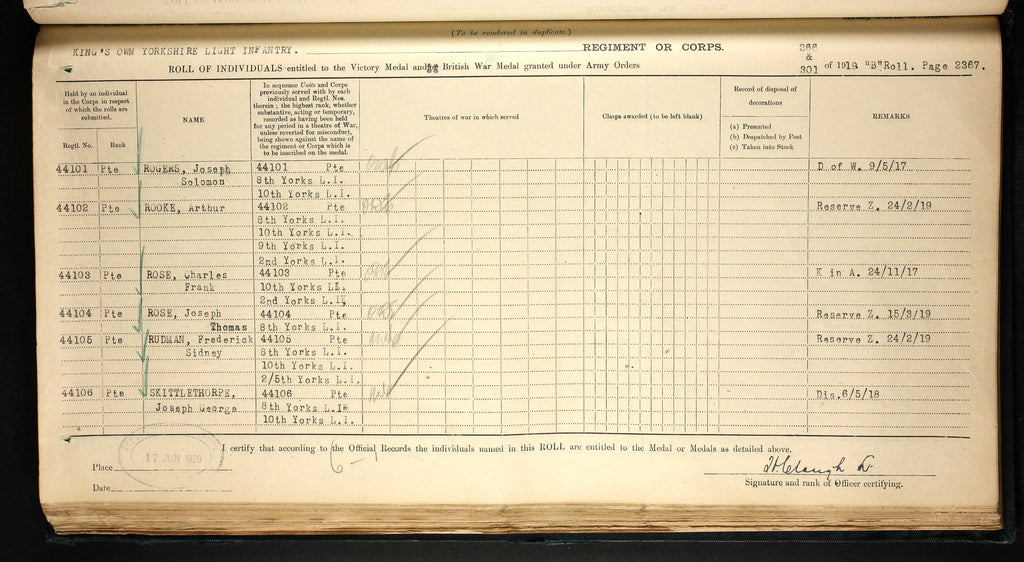 (To be rendered in duplicate.)
KING'S OWN YORKSHIRE LIGHT INFANTRY. REGIMENT OR CORPS.
ROLL OF INDIVIDUALS entitled to the Victory Medal and British War Medal granted under Army Orders 266 & 301 of 1919 "B" Roll. Page 2367.
Held by an individual in the Corps in respect of which the rolls are submitted.
Regtl. No. Rank
NAME
In sequence Units and Corps previously served with by each individual and Regtl. Nos. therein; the highest rank, whether substantive, acting or temporary, recorded as having been held for any period in a theatre of War, unless reverted for misconduct, being shown against the name of the regiment or Corps which is to be inscribed on the medal.
Theatres of war in which served
Clasps awarded (to be left blank)
Record of disposal of decorations
(a) Presented
(b) Despatched by Post
(c) Taken into Stock
REMARKS
44101 Pte ROGERS, Joseph 44101 Pte D of W. 9/5/17
Solomon 8th Yorks L.I.
10th Yorks L.I.
44102 Pte ROOKE, Arthur 44102 Pte Reserve Z. 24/2/19
8th Yorks L.I.
10th Yorks L.I.
9th Yorks L.I.
2nd Yorks L.I.
44103 Pte ROSE, Charles 44103 Pte K in A. 24/11/17
Frank 10th Yorks LI.
2nd Yorks L.I.
44104 Pte ROSE, Joseph 44104 Pte Reserve Z. 15/3/19
Thomas 8th Yorks L.I.
44105 Pte RUDMAN, Frederick 44105 Pte Reserve Z. 24/2/19
Sidney 8th Yorks L.I.
10th Yorks L.I.
2/5th Yorks L.I.
44106 Pte SKITTLETHORPE, 44106 Pte Dis.6/5/18
Joseph George 8th Yorks L.I.
10th Yorks L.I.
I certify that according to the Official Records the individuals named in this ROLL are entitled to the Medal or Medals as detailed above.
17 JUN 1920
Place
Date
Signature and rank of Officer certifying.